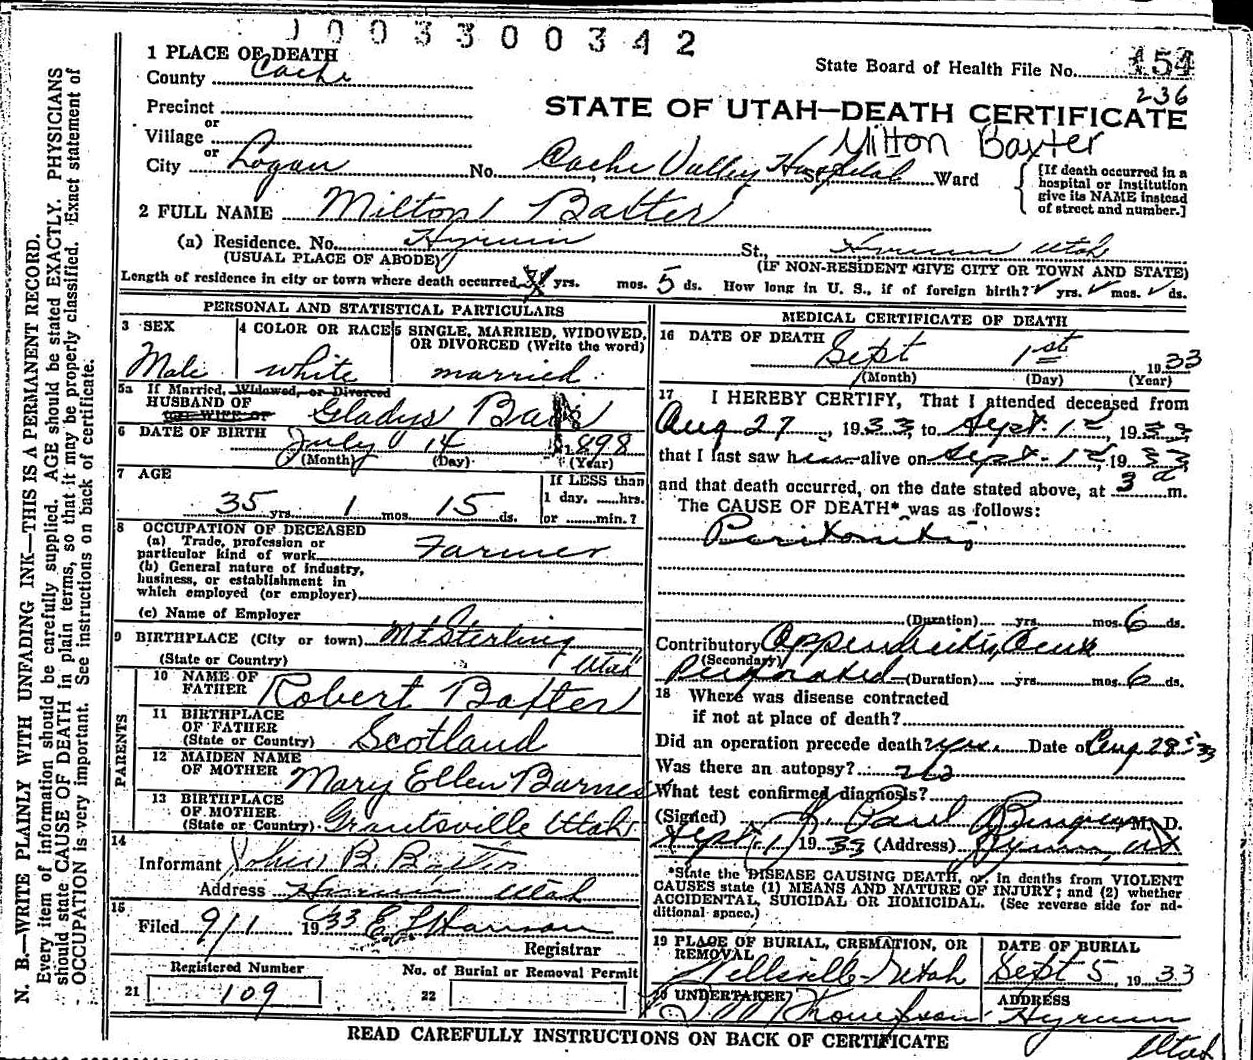 003300342
1 PLACE OF DEATH
County Cache
State Board of Health File No. 154
236
Precinct
or
Village
STATE OF UTAH—DEATH CERTIFICATE
Milton Baxter
or
City Logan No. Cache Valley Hospital St., Ward
[If death occurred in a
hospital or institution
give its NAME instead
of street and number.]
2 FULL NAME Milton Baxter
(a) Residence. No. Hyrum St., Hyrum Utah
(USUAL PLACE OF ABODE)
(IF NON-RESIDENT GIVE CITY OR TOWN AND STATE)
Length of residence in city or town where death occurred yrs. mos. 5 ds. How long in U. S., if of foreign birth? yrs. mos. ds.
PERSONAL AND STATISTICAL PARTICULARS
3 SEX
Male
4 COLOR OR RACE
white
5 SINGLE, MARRIED, WIDOWED,
OR DIVORCED (Write the word)
married
5a If Married, Widowed, or Divorced
HUSBAND OF
(or) WIFE OF
Gladys
6 DATE OF BIRTH July 14 1898
(Month) (Day) (Year)
7 AGE
35 yrs. 1 mos. 15 ds.
If LESS than
1 day, ......hrs.
or ........min.?
8 OCCUPATION OF DECEASED
(a) Trade, profession or
particular kind of work Farmer
(b) General nature of industry,
business, or establishment in
which employed (or employer)
(c) Name of Employer
9 BIRTHPLACE (City or town) Mt Sterling
(State or Country) Utah
PARENTS
10 NAME OF
FATHER Robert Baxter
11 BIRTHPLACE
OF FATHER
(State or Country) Scotland
12 MAIDEN NAME
OF MOTHER Mary Ellen Barnes
13 BIRTHPLACE
OF MOTHER
(State or Country) Grantsville Utah
14
Informant John B. Baxter
Address Hyrum Utah
15
Filed 9/1 1933
Registrar
Registered Number
21 109
No. of Burial or Removal Permit
22
MEDICAL CERTIFICATE OF DEATH
16 DATE OF DEATH
Sept 1st 1933
(Month) (Day) (Year)
17 I HEREBY CERTIFY, That I attended deceased from
Aug 27, 1933, to Sept. 1st, 1933
that I last saw him alive on Sept. 1st, 1933
and that death occurred, on the date stated above, at 3 a m.
The CAUSE OF DEATH* was as follows:
Peritonitis
(Duration) yrs. mos. 6 ds.
Contributory Appendicitis, Acute
(Secondary)
Perforated (Duration) yrs. mos. 6 ds.
18 Where was disease contracted
if not at place of death?
Did an operation precede death? yes. Date of Aug 28 - 33
Was there an autopsy? no
What test confirmed diagnosis?
(Signed) M. D.
Sept 1, 1933 (Address) Hyrum, Ut
*State the DISEASE CAUSING DEATH, or, in deaths from VIOLENT
CAUSES state (1) MEANS AND NATURE OF INJURY; and (2) whether
ACCIDENTAL, SUICIDAL OR HOMICIDAL. (See reverse side for ad-
ditional space.)
19 PLACE OF BURIAL, CREMATION, OR
REMOVAL
Wellsville Utah
DATE OF BURIAL
Sept 5, 1933
20 UNDERTAKER
Thompson
ADDRESS
Hyrum
Utah
READ CAREFULLY INSTRUCTIONS ON BACK OF CERTIFICATE
N. B.—WRITE PLAINLY WITH UNFADING INK—THIS IS A PERMANENT RECORD.
Every item of information should be carefully supplied. AGE should be stated EXACTLY. PHYSICIANS
should state CAUSE OF DEATH in plain terms, so that it may be properly classified. Exact statement of
OCCUPATION is very important. See instructions on back of certificate.